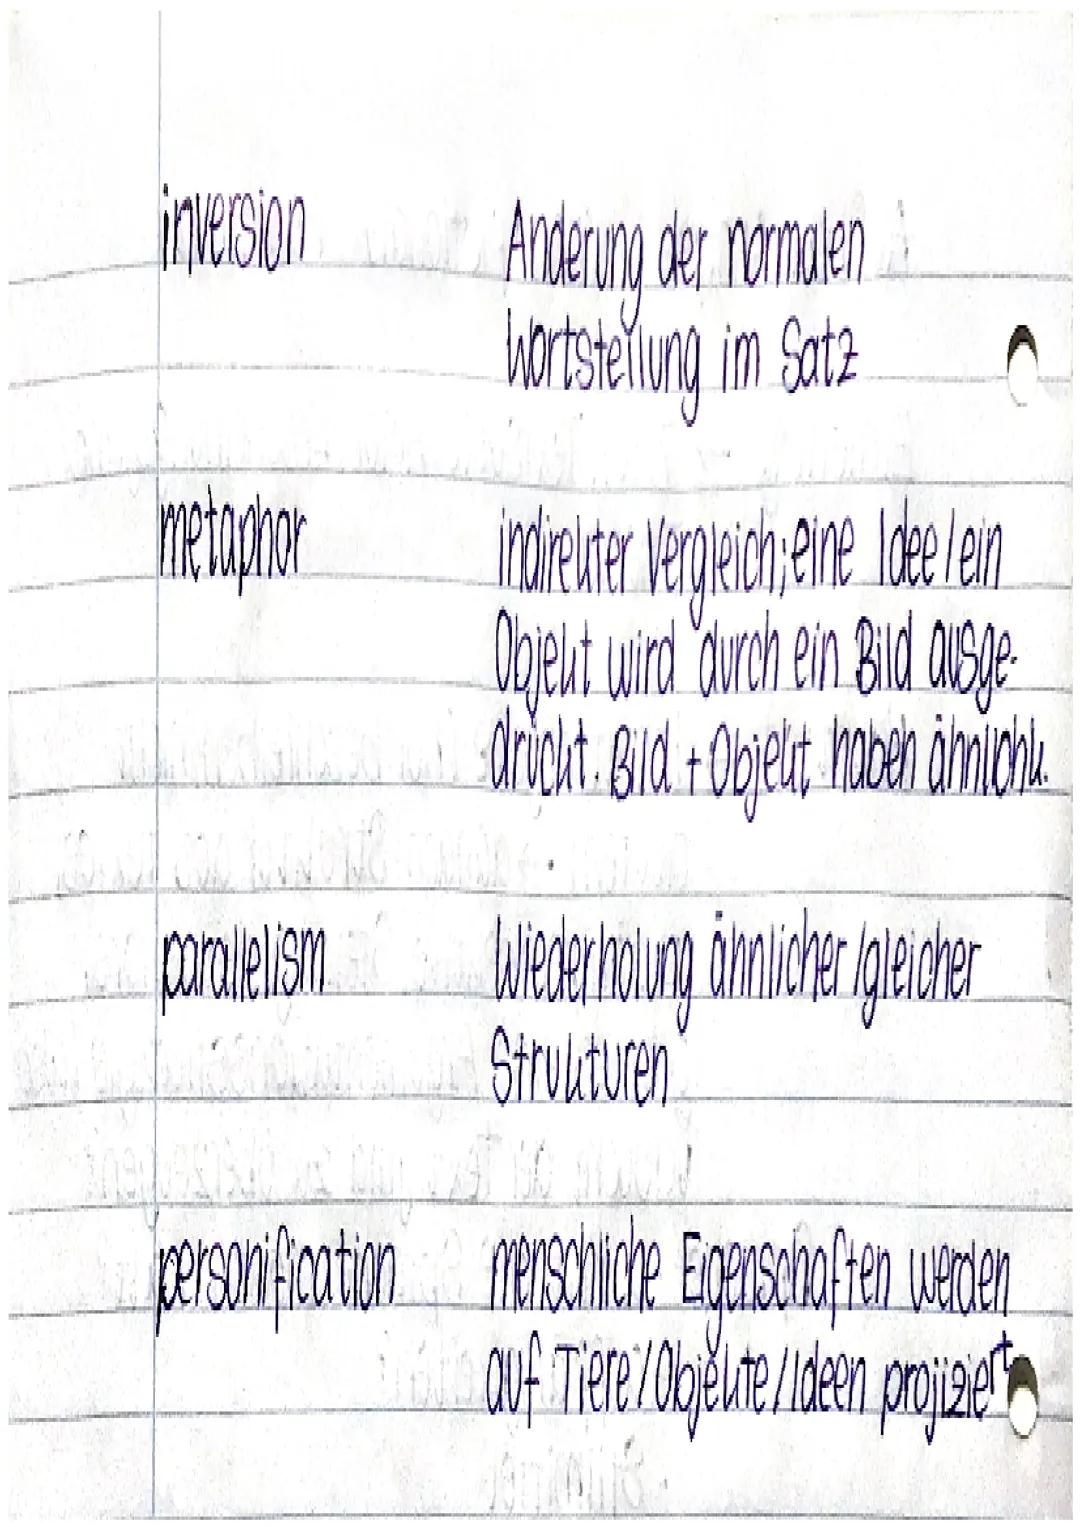 inversion Änderung der normalen
Wortstellung im Satz
metaphor indirekter Vergleich; eine Idee/ein
Objekt wird durch ein Bild ausge-
drückt. Bild + Objekt haben ähnlichk.
parallelism Wiederholung ähnlicher/gleicher
Strukturen
personification menschliche Eigenschaften werden
auf Tiere/Objekte/Ideen projiziert